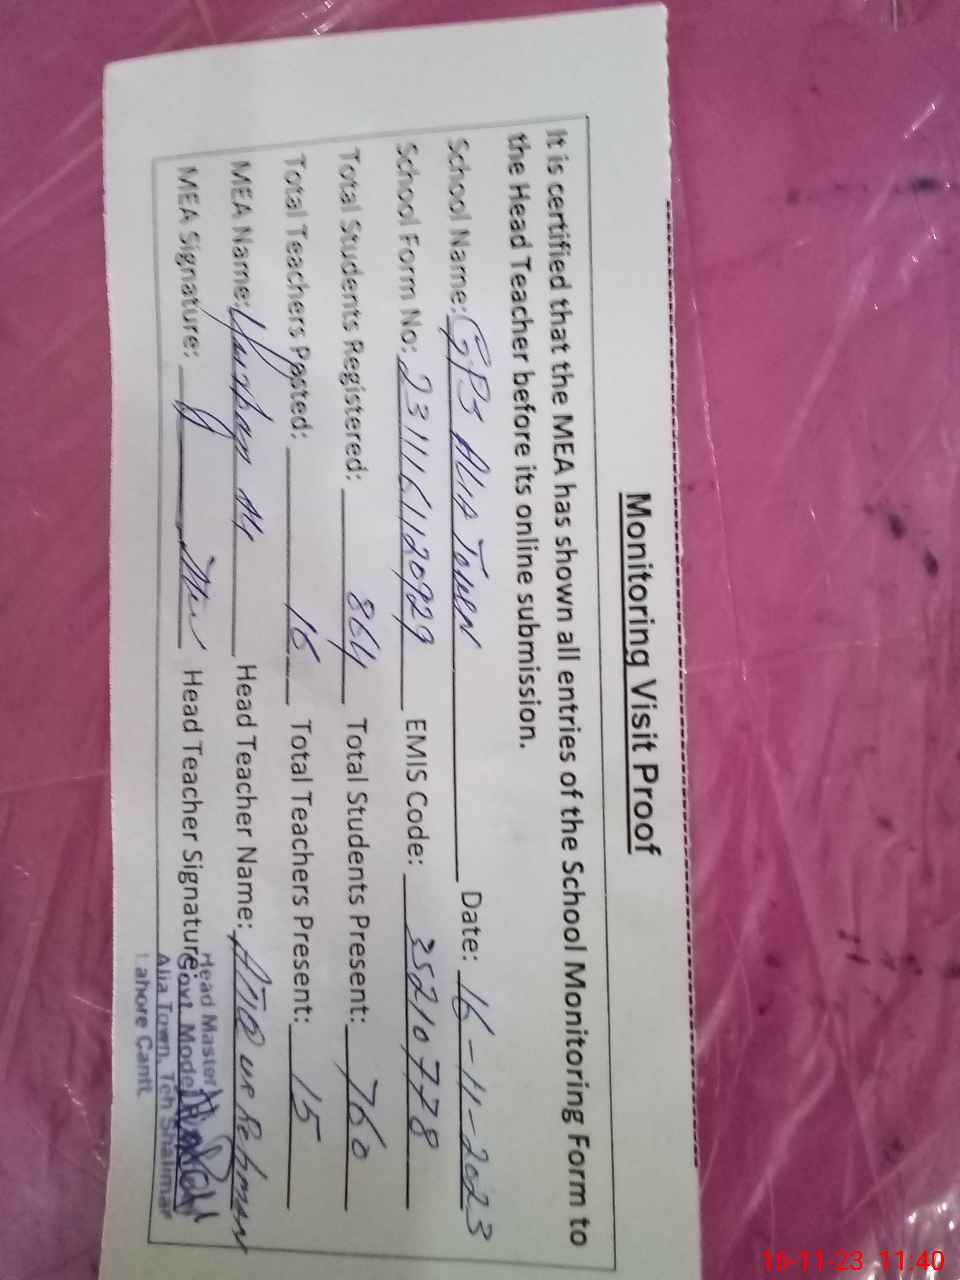 Monitoring Visit Proof
It is certified that the MEA has shown all entries of the School Monitoring Form to
the Head Teacher before its online submission.
School Name: GPS Alia Town Date: 16-11-2023
School Form No: 2311161120929 EMIS Code: 35210778
Total Students Registered: 864 Total Students Present: 760
Total Teachers Posted: 15 Total Teachers Present: 15
MEA Name: Head Teacher Name: Atiq ur Rehman
MEA Signature: Head Teacher Signature:
Head Master
Govt. Model
Alia Town, Teh Shalimar
Lahore Cantt.
16-11-23 11:40